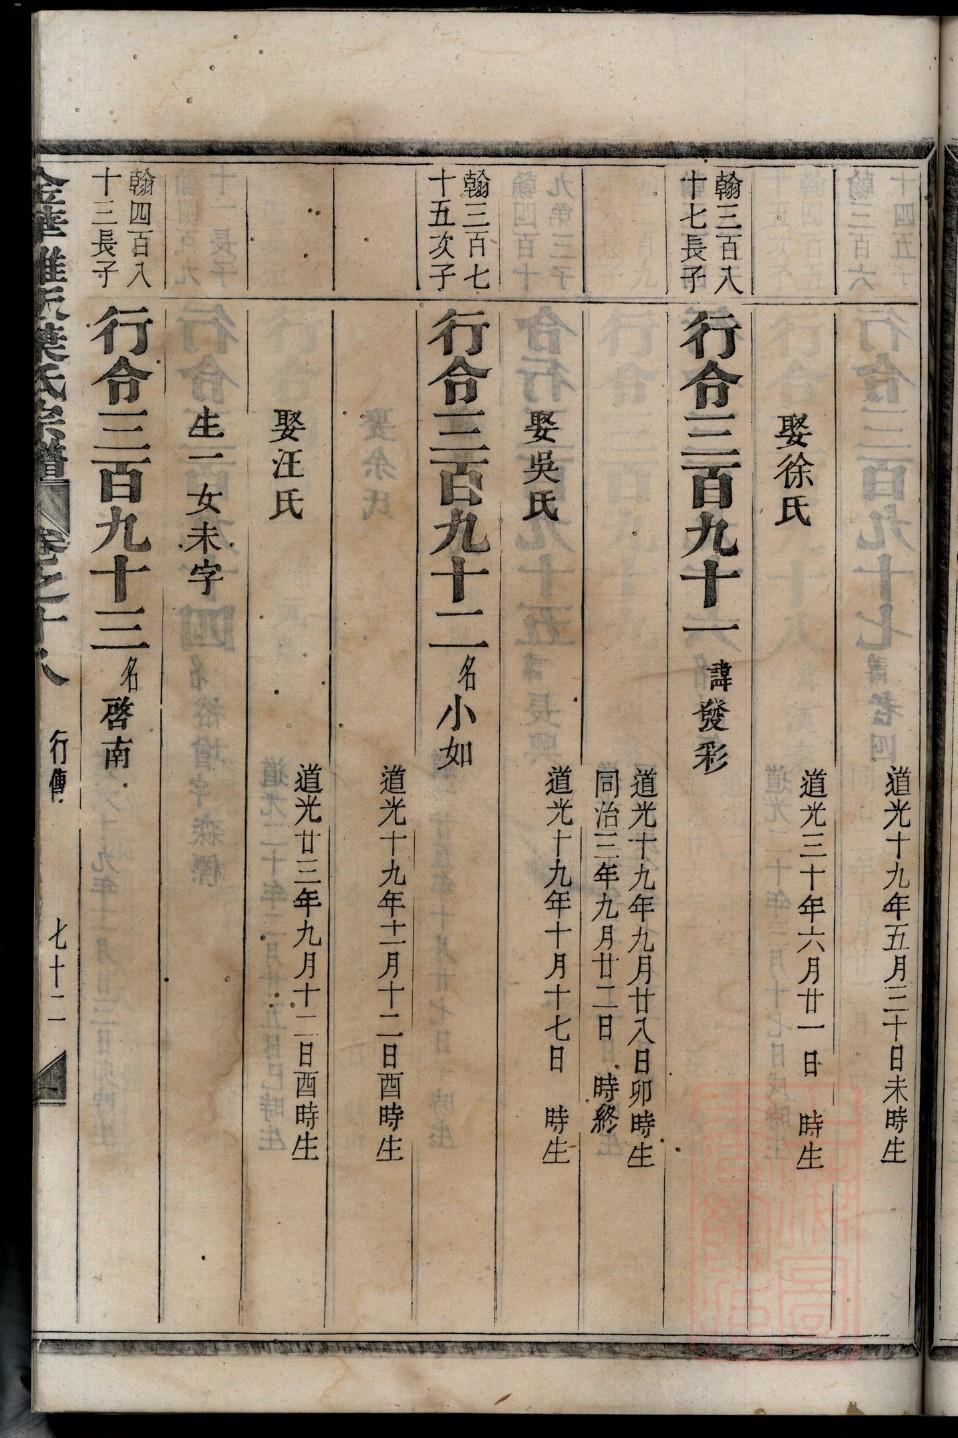 道光十九年五月三十日未時生
娶徐氏
道光三十年六月廿一日　時生
翰三百八
十七長子
行令三百九十一
諱發彩
道光十九年九月廿八日卯時生
同治三年九月廿二日　時終
娶吳氏
道光十九年十月十七日　時生
翰三百七
十五次子
行令三百九十二
名小如
道光十九年十一月十二日酉時生
娶汪氏
道光廿三年九月十二日酉時生
生一女未字
翰四百八
十三長子
行令三百九十三
名啓南
葉氏宗譜
卷之十八
行傳
七十二